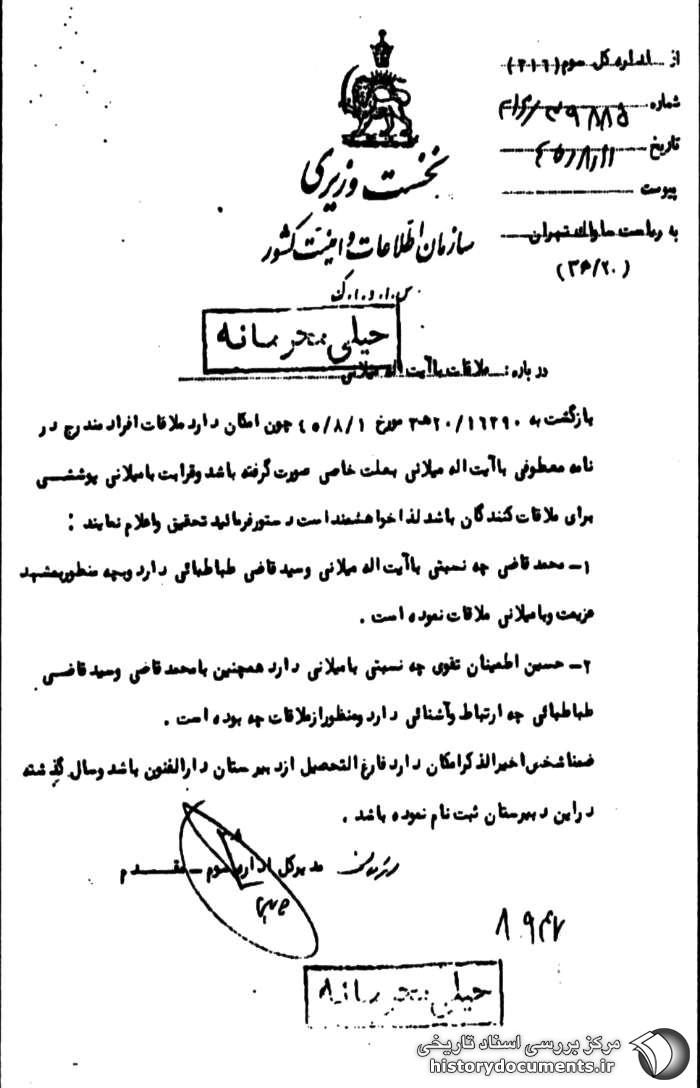 از اداره کل سوم (۳۱۶)
شماره ۳۱۶/۳۹۸۸۵
تاریخ ۴۵/۸/۲۱
پیوست
به ریاست ساواک تهران
(۳۶/۲۰)
نخست وزیری
سازمان اطلاعات و امنیت کشور
س.ا.و.ا.ک
خیلی محرمانه
درباره: ملاقات با آیت اله میلانی
بازگشت به ۱۶۲۹۰/۲۰ﻫ۳ مورخ ۴۵/۸/۱ چون امکان دارد ملاقات افراد مندرج در
نامه معطوفی با آیت اله میلانی بعلت خاصی صورت گرفته باشد وقرابت با میلانی پوششی
برای ملاقات کنندگان باشد لذا خواهشمند است دستور فرمائید تحقیق واعلام نمایند :
۱- محمد قاضی چه نسبتی با آیت اله میلانی وسید قاضی طباطبائی دارد وبچه منظور بمشهد
عزیمت وبا میلانی ملاقات نموده است .
۲- حسین اطمینان تقوی چه نسبتی با میلانی دارد همچنین با محمد قاضی وسید قاضی
طباطبائی چه ارتباط وآشنائی دارد ومنظور از ملاقات چه بوده است .
ضمنا شخص اخیر الذکر امکان دارد فارغ التحصیل از دبیرستان دارالفنون باشد وسال گذشته
در این دبیرستان ثبت نام نموده باشد .
مدیر کل اداره سوم - مقدم
خیلی محرمانه
مرکز بررسی اسناد تاریخی
historydocuments.ir